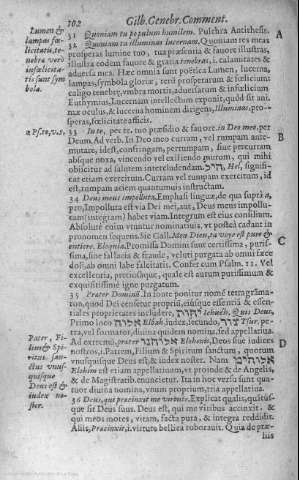 102
Gilb. Genebr. Comment.
Lumen &
lampas fœ-
licitatis, te-
nebræ verò
infœlicita-
tis sunt sym-
bola.
31 Quoniam tu populum humilem. Pulchra Antithesis.
32 Quoniam tu illuminas lucernam. Quoniam res meas
prosperas lumine tuo, tua præsentia & fauore illustras,
illustra eodem fauore & gratia tenebras, i. calamitates &
aduersa mea. Hæc omnia sunt poëtica Lumen, lucerna,
lampas, symbola gloriæ, rerū prosperarum & fœlicium:
caligo tenebræ, vmbra mortis, aduersarum & infœlicium
Euthymius, Lucernam intellectum exponit, quòd sit ani-
mæ oculus, & lucerna hominem dirigens, Illuminans, pro-
speras, fœlicitate afficis.
A
a Psco, v.s.
33 In te, per te, tuo præsidio & fauore. In Deo meo, per
Deum. Ad verb. In Deo meo curram, vel rumpam ante-
murale, id est, confringam, perrumpam, siue percurram
absque noxa, vincendo vel exiliendo murum, qui mihi
obiicitur ad salutem intercludendam.
etiam exercitum. Currum vel rumpam exercitum, id
est, rumpam aciem quantumuis instructam.
B
34 Deus meus impolluta. Emphasis singuæ, de qua suprà a,
pro, Impolluta est via Dei mei, aut, Deus meus impollu-
tam (integram) habet viam. Integrum est eius consilium.
Absolutè enim vtuntur nominatiuo, vt postea cadant in
pronomen sequens. Sic Gall. Mon Dieu, sa voye est pure &
entiere. Eloquia. Promissa Domini sunt certissima, purissi-
ma, sine fallacia & fraude, veluti purgata ab omni fæce
doli, ab omni labe falsitatis. Confer cum Psalm. 11. Vel
excellentia, preciosaque, quale est aurum purissimum &
exquisitissimè igne purgatum.
C
35 Præter Dominū. In fonte ponitur nomē tetragramma-
ton, quod Dei censetur proprii, eiusque essentiā & essen-
tiales proprietates includere, יהוה Iehueh. Quis Deus,
Primo loco אלוה Eloah, iudex, secundo, צור Tsur, pe-
tra, vel formator, diuina quidem nomina, sed appellatiua.
Pater, Fi-
lius & Spi-
ritus san-
ctus vnus-
quisque
Deus est &
index no-
ster.
Ad extremū, præter אלהינו Elohenu, Deus siue iudices
nostros, i. Patrem, Filium & Spiritum sanctum, quorum
vnusquisque Deus est, & iudex noster. Nam אלהים
Elohim est etiam appellatiuum, et proinde & de Angelis,
& de Magistratib. enunciatur. Ita in hoc versu sunt qua-
tuor diuina nomina, vnum proprium, tria appellatiua.
D
36 Deus, qui præcinxit me virtute. Explicat qualis, quótus-
que sit Deus suus. Deus est, qui me viribus accinxit, &
qui meos motus, vitam, facta pura, & integra reddidit.
Aliis, Præcinxit, i. virtute bellica roborauit. Quia de præ-
liis